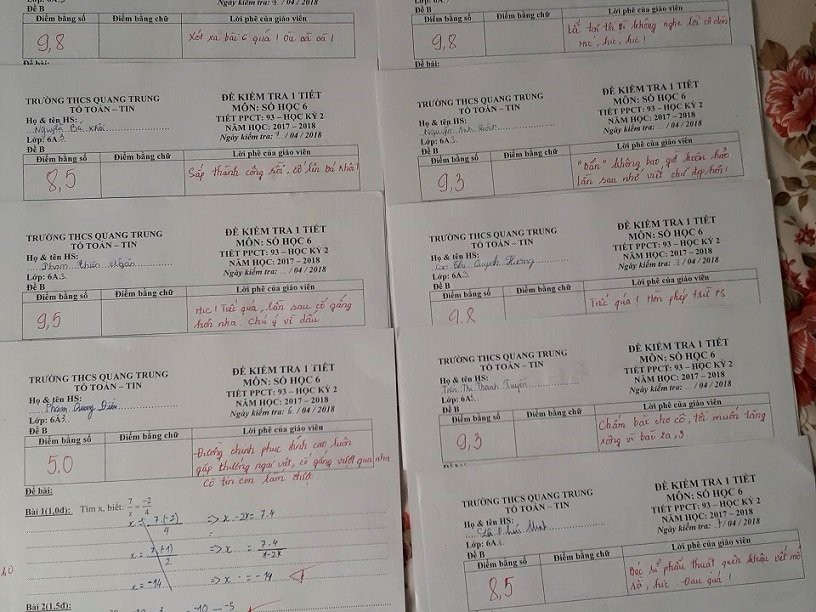 Đề B
9,8
Lời phê của giáo viên
Xót xa bài 6 quá ! Òa òa òa !
Đề bài:
TRƯỜNG THCS QUANG TRUNG
TỔ TOÁN – TIN
Họ & tên HS:
Nguyễn Bá Khôi
Lớp: 6A3
Đề B
ĐỀ KIỂM TRA 1 TIẾT
MÔN: SỐ HỌC 6
TIẾT PPCT: 93 – HỌC KỲ 2
NĂM HỌC: 2017 – 2018
Ngày kiểm tra: /04 / 2018
Điểm bằng số
Điểm bằng chữ
Lời phê của giáo viên
8,5
Sắp thành công rồi, cố lên Bá Khôi !
TRƯỜNG THCS QUANG TRUNG
TỔ TOÁN – TIN
Họ & tên HS:
Phạm Thiên Ngân
Lớp: 6A3
Đề B
ĐỀ KIỂM TRA 1 TIẾT
MÔN: SỐ HỌC 6
TIẾT PPCT: 93 – HỌC KỲ 2
NĂM HỌC: 2017 – 2018
Ngày kiểm tra: ... / 04 / 2018
Điểm bằng số
Điểm bằng chữ
Lời phê của giáo viên
9,5
Hic ! Tiếc quá, lần sau cố gắng
hơn nha. Chú ý về dấu
TRƯỜNG THCS QUANG TRUNG
TỔ TOÁN – TIN
Họ & tên HS:
Phạm Quang Diệu
Lớp: 6A3
Đề B
ĐỀ KIỂM TRA 1 TIẾT
MÔN: SỐ HỌC 6
TIẾT PPCT: 93 – HỌC KỲ 2
NĂM HỌC: 2017 – 2018
Ngày kiểm tra: 6 / 04 / 2018
Điểm bằng số
Điểm bằng chữ
Lời phê của giáo viên
5,0
Đường chinh phục đỉnh cao luôn
gặp chướng ngại vật, cố gắng vượt qua nha
Cô tin con làm được
Đề bài:
Bài 1(1,0đ): Tìm x, biết: 7/x = -2/4
x = 7.(-2)/4 => x.-2 = 7.4
x = 7.(-1)/2 => x = 7.4/-2
x = -14 => x = -14
Bài 2(1,5đ)
Đề B
9,8
Lời phê của giáo viên
hic, hic, hic !
Đề bài:
TRƯỜNG THCS QUANG TRUNG
TỔ TOÁN – TIN
Họ & tên HS:
Nguyễn Anh
Lớp: 6A3
Đề B
ĐỀ KIỂM TRA 1 TIẾT
MÔN: SỐ HỌC 6
TIẾT PPCT: 93 – HỌC KỲ 2
NĂM HỌC: 2017 – 2018
Ngày kiểm tra: ... / 04 / 2018
Điểm bằng số
Điểm bằng chữ
Lời phê của giáo viên
9,3
"Bẩn" không bao giờ hoàn hảo
lần sau nhớ viết chữ đẹp hơn !
TRƯỜNG THCS QUANG TRUNG
TỔ TOÁN – TIN
Họ & tên HS:
Thị Quỳnh Hương
Lớp: 6A3
Đề B
ĐỀ KIỂM TRA 1 TIẾT
MÔN: SỐ HỌC 6
TIẾT PPCT: 93 – HỌC KỲ 2
NĂM HỌC: 2017 – 2018
Ngày kiểm tra: / 04 / 2018
Điểm bằng số
Điểm bằng chữ
Lời phê của giáo viên
9,8
Tiếc quá ! Hờn phép trừ PS
TRƯỜNG THCS QUANG TRUNG
TỔ TOÁN – TIN
Họ & tên HS:
Trần Thị Thanh Tuyền
Lớp: 6A3
Đề B
ĐỀ KIỂM TRA 1 TIẾT
MÔN: SỐ HỌC 6
TIẾT PPCT: 93 – HỌC KỲ 2
NĂM HỌC: 2017 – 2018
Ngày kiểm tra: ... / 04 / 2018
Điểm bằng số
Điểm bằng chữ
Lời phê của giáo viên
9,3
Chấm bài cho cô, tôi muốn tăng
xông vì bài 2a,3
TRƯỜNG THCS QUANG TRUNG
TỔ TOÁN – TIN
Họ & tên HS:
Lớp: 6A
Đề B
ĐỀ KIỂM TRA 1 TIẾT
MÔN: SỐ HỌC 6
TIẾT PPCT: 93 – HỌC KỲ 2
NĂM HỌC: 2017 – 2018
Ngày kiểm tra: / 04 / 2018
Điểm bằng số
Điểm bằng chữ
Lời phê của giáo viên
8,5
Bác sĩ phẫu thuật quên khâu vết mổ
rồi, hic Đau quá !